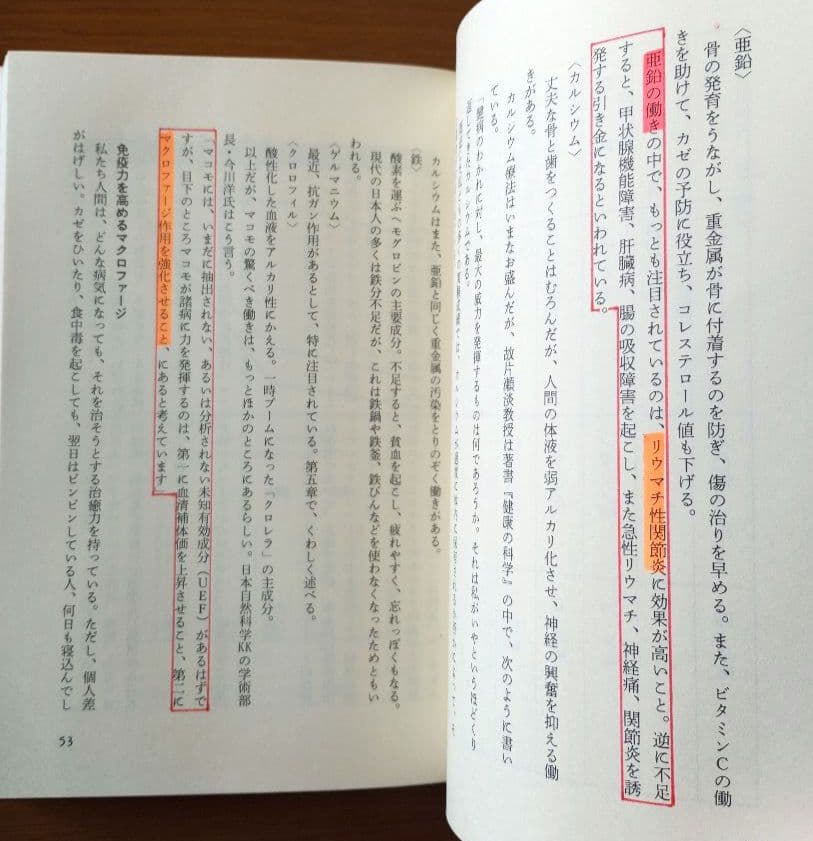 〈亜鉛〉
骨の発育をうながし、重金属が骨に付着するのを防ぎ、傷の治りを早める。また、ビタミンCの働
きを助けて、カゼの予防に役立ち、コレステロール値も下げる。
亜鉛の働きの中で、もっとも注目されているのは、リウマチ性関節炎に効果が高いこと。逆に不足
すると、甲状腺機能障害、肝臓病、腸の吸収障害を起こし、また急性リウマチ、神経痛、関節炎を誘
発する引き金になるといわれている。
〈カルシウム〉
丈夫な骨と歯をつくることはむろんだが、人間の体液を弱アルカリ化させ、神経の興奮を抑える働
きがある。
カルシウム療法はいまなお盛んだが、故片瀬淡教授は著書『健康の科学』の中で、次のように書い
ている。
「健病のわかれに対し、最大の威力を発揮するものは何であろうか。それは私がいやというほどくり
返してきたカルシウムである。
カルシウムはまた、亜鉛と同じく重金属の汚染をとりのぞく働きがある。
〈鉄〉
酸素を運ぶヘモグロビンの主要成分。不足すると、貧血を起こし、疲れやすく、忘れっぽくもなる。
現代の日本人の多くは鉄分不足だが、これは鉄鍋や鉄釜、鉄びんなどを使わなくなったためともい
われる。
〈ゲルマニウム〉
最近、抗ガン作用があるとして、特に注目されている。第五章で、くわしく述べる。
〈クロロフィル〉
酸性化した血液をアルカリ性にかえる。一時ブームになった「クロレラ」の主成分。
以上だが、マコモの驚くべき働きは、もっとほかのところにあるらしい。日本自然科学KKの学術部
長・今川洋氏はこう言う。
「マコモには、いまだに抽出されない、あるいは分析されない未知有効成分（UEF）があるはずで
すが、目下のところマコモが諸病に力を発揮するのは、第一に血清補体価を上昇させること、第二に
マクロファージ作用を強化させること、にあると考えています」
免疫力を高めるマクロファージ
私たち人間は、どんな病気になっても、それを治そうとする治癒力を持っている。ただし、個人差
がはげしい。カゼをひいたり、食中毒を起こしても、翌日はピンピンしている人、何日も寝込んでし
53